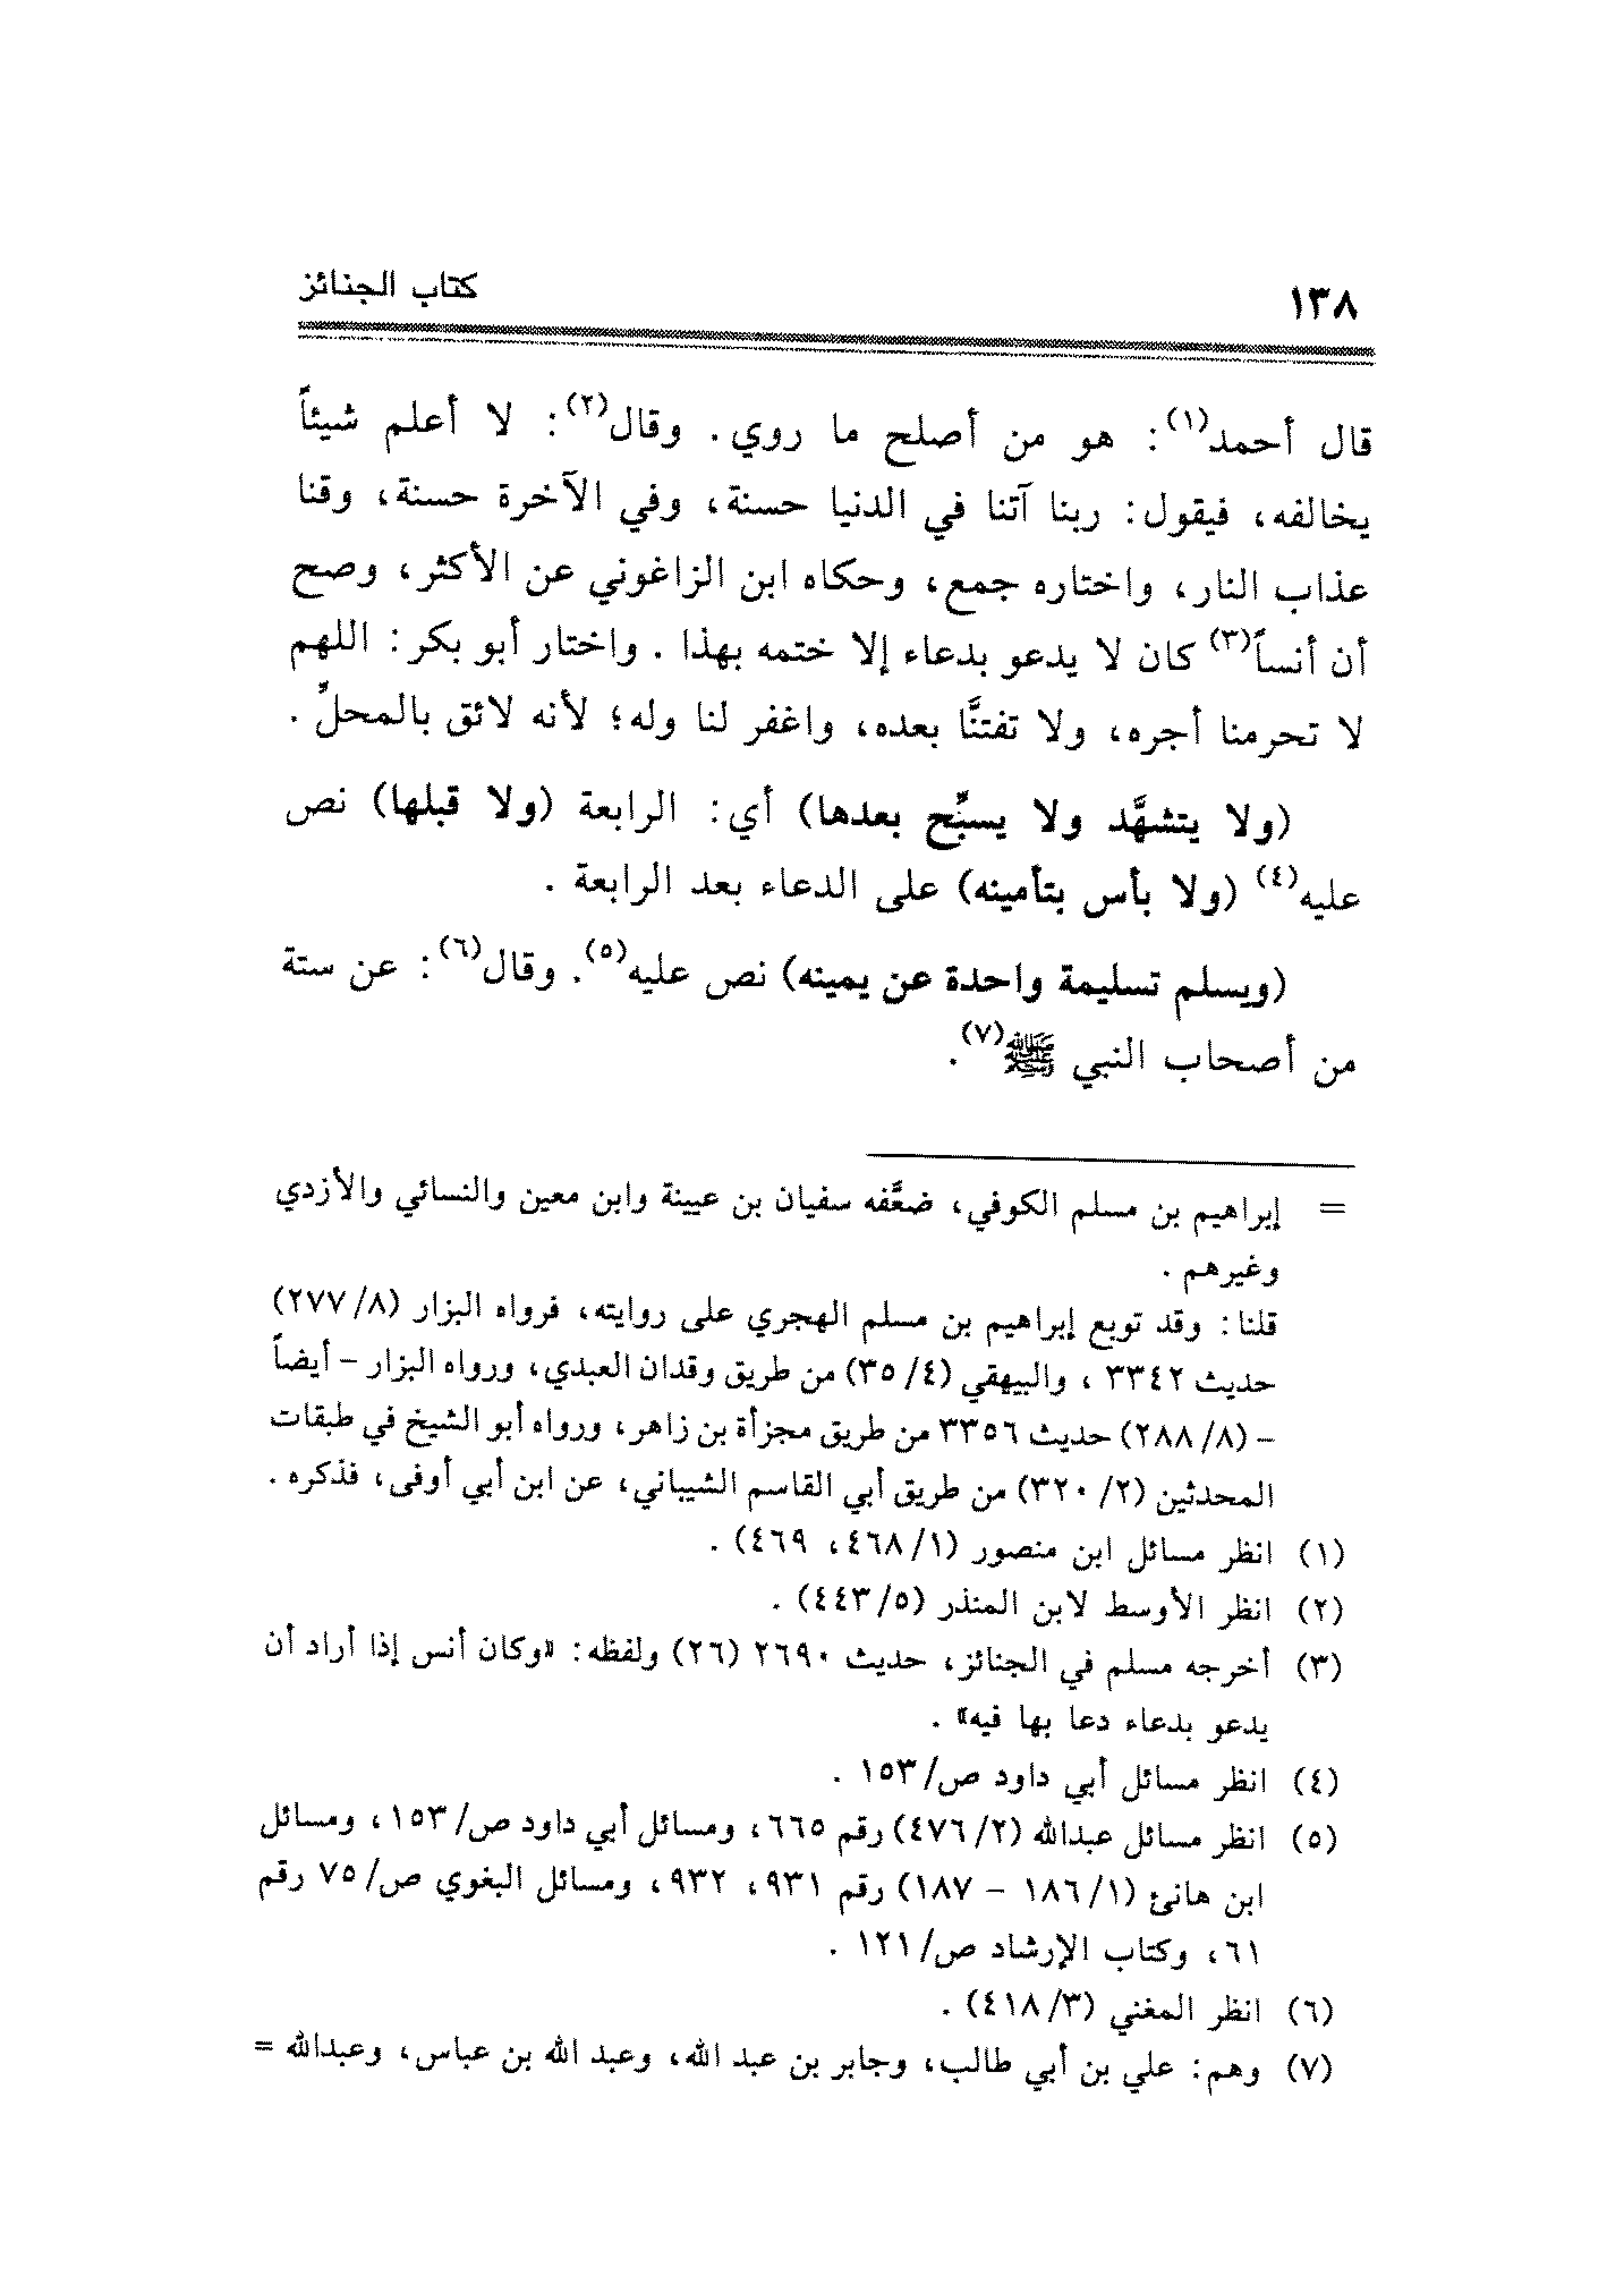 ١٣٨ كتاب الجنائز
قال أحمد(١): هو من أصلح ما روي. وقال(٢): لا أعلم شيئاً
يخالفه، فيقول: ربنا آتنا في الدنيا حسنة، وفي الآخرة حسنة، وقنا
عذاب النار، واختاره جمع، وحكاه ابن الزاغوني عن الأكثر، وصح
أن أنساً(٣) كان لا يدعو بدعاء إلا ختمه بهذا. واختار أبو بكر: اللهم
لا تحرمنا أجره، ولا تفتنَّا بعده، واغفر لنا وله؛ لأنه لائق بالمحلِّ.
(ولا يتشهَّد ولا يسبِّح بعدها) أي: الرابعة (ولا قبلها) نص
عليه(٤) (ولا بأس بتأمينه) على الدعاء بعد الرابعة.
(ويسلم تسليمة واحدة عن يمينه) نص عليه(٥). وقال(٦): عن ستة
من أصحاب النبي ﷺ(٧).
= إبراهيم بن مسلم الكوفي، ضعَّفه سفيان بن عيينة وابن معين والنسائي والأزدي
وغيرهم.
قلنا: وقد توبع إبراهيم بن مسلم الهجري على روايته، فرواه البزار (٨/ ٢٧٧)
حديث ٣٣٤٢، والبيهقي (٤/ ٣٥) من طريق وقدان العبدي، ورواه البزار - أيضاً
- (٨/ ٢٨٨) حديث ٣٣٥٦ من طريق مجزأة بن زاهر، ورواه أبو الشيخ في طبقات
المحدثين (٢/ ٣٢٠) من طريق أبي القاسم الشيباني، عن ابن أبي أوفى، فذكره.
(١) انظر مسائل ابن منصور (١/ ٤٦٨، ٤٦٩).
(٢) انظر الأوسط لابن المنذر (٥/ ٤٤٣).
(٣) أخرجه مسلم في الجنائز، حديث ٢٦٩٠ (٢٦) ولفظه: «وكان أنس إذا أراد أن
يدعو بدعاء دعا بها فيه».
(٤) انظر مسائل أبي داود ص/ ١٥٣.
(٥) انظر مسائل عبدالله (٢/ ٤٧٦) رقم ٦٦٥، ومسائل أبي داود ص/ ١٥٣، ومسائل
ابن هانئ (١/ ١٨٦ - ١٨٧) رقم ٩٣١، ٩٣٢، ومسائل البغوي ص/ ٧٥ رقم
٦١، وكتاب الإرشاد ص/ ١٢١.
(٦) انظر المغني (٣/ ٤١٨).
(٧) وهم: علي بن أبي طالب، وجابر بن عبد الله، وعبد الله بن عباس، وعبدالله =